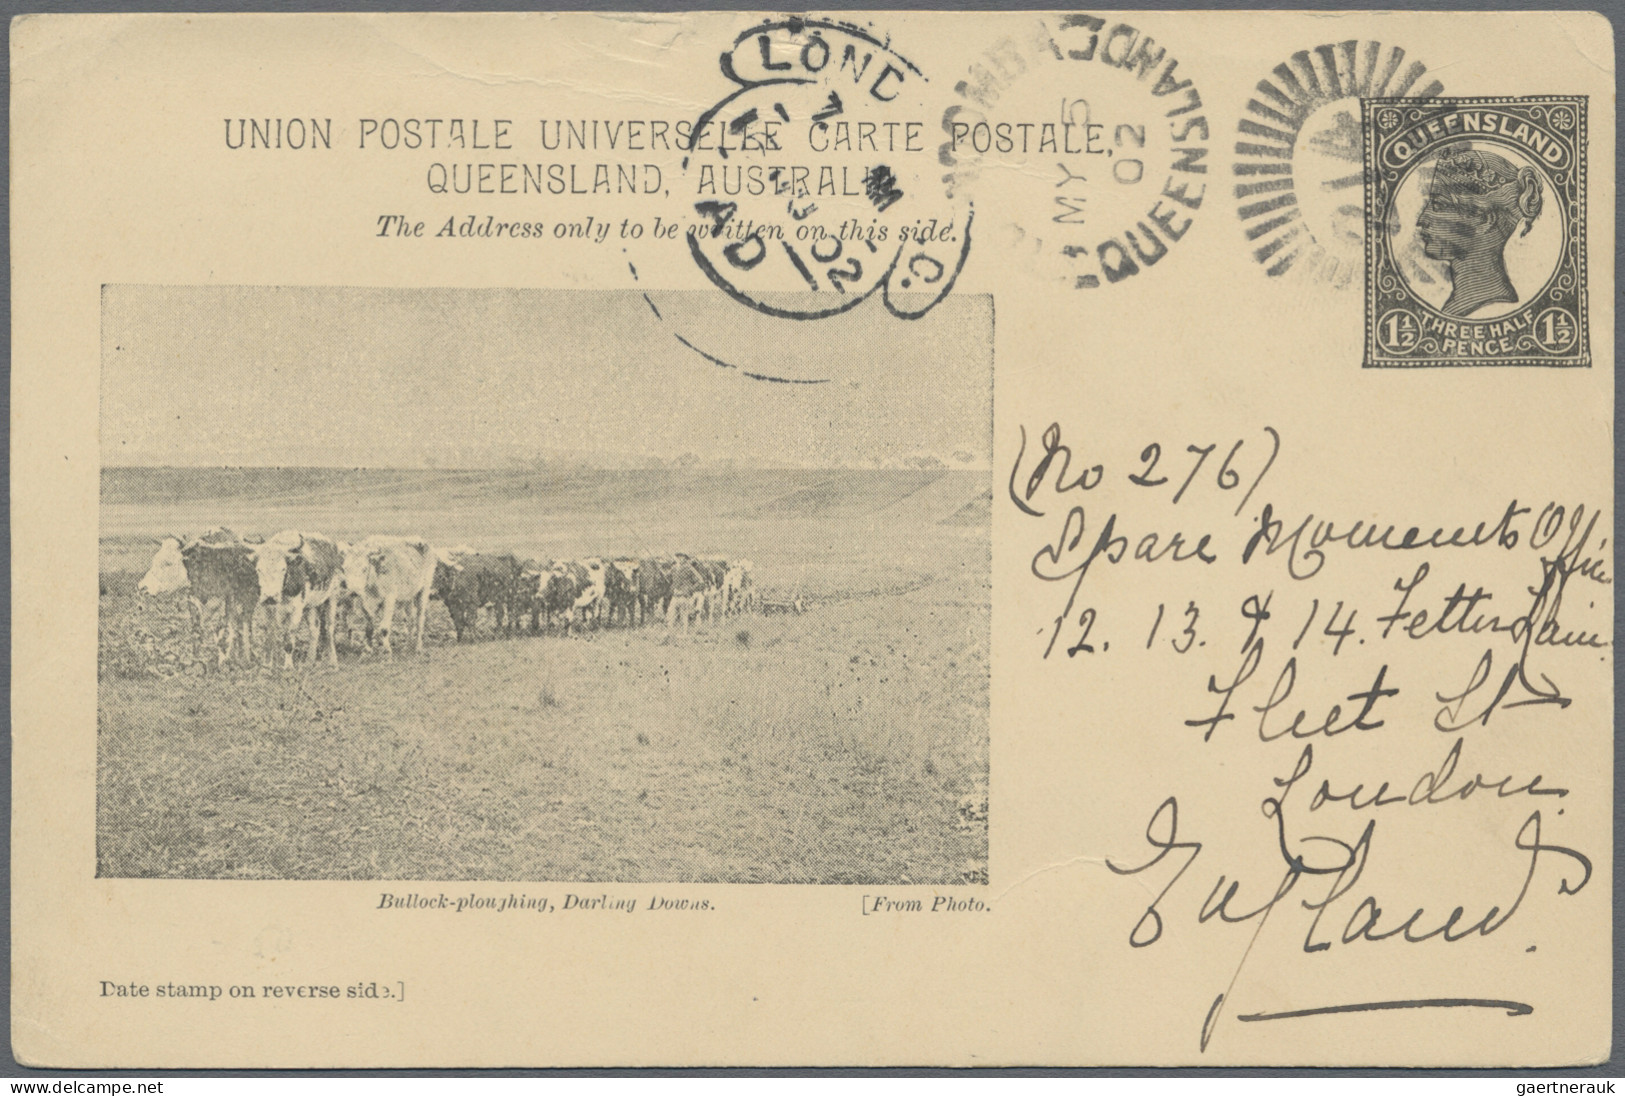 UNION POSTALE UNIVERSELLE CARTE POSTALE,
QUEENSLAND, AUSTRALIA
The Address only to be written on this side.
LOND
MY 5
02
QUEENSLAND
QUEENSLAND
1½ THREE HALF PENCE 1½
(No 276)
Spare Moments Office
12. 13. & 14. Fetter Lane
Fleet St
London
England.
Bullock-ploughing, Darling Downs.
[From Photo.
Date stamp on reverse side.]
gaertnerauk